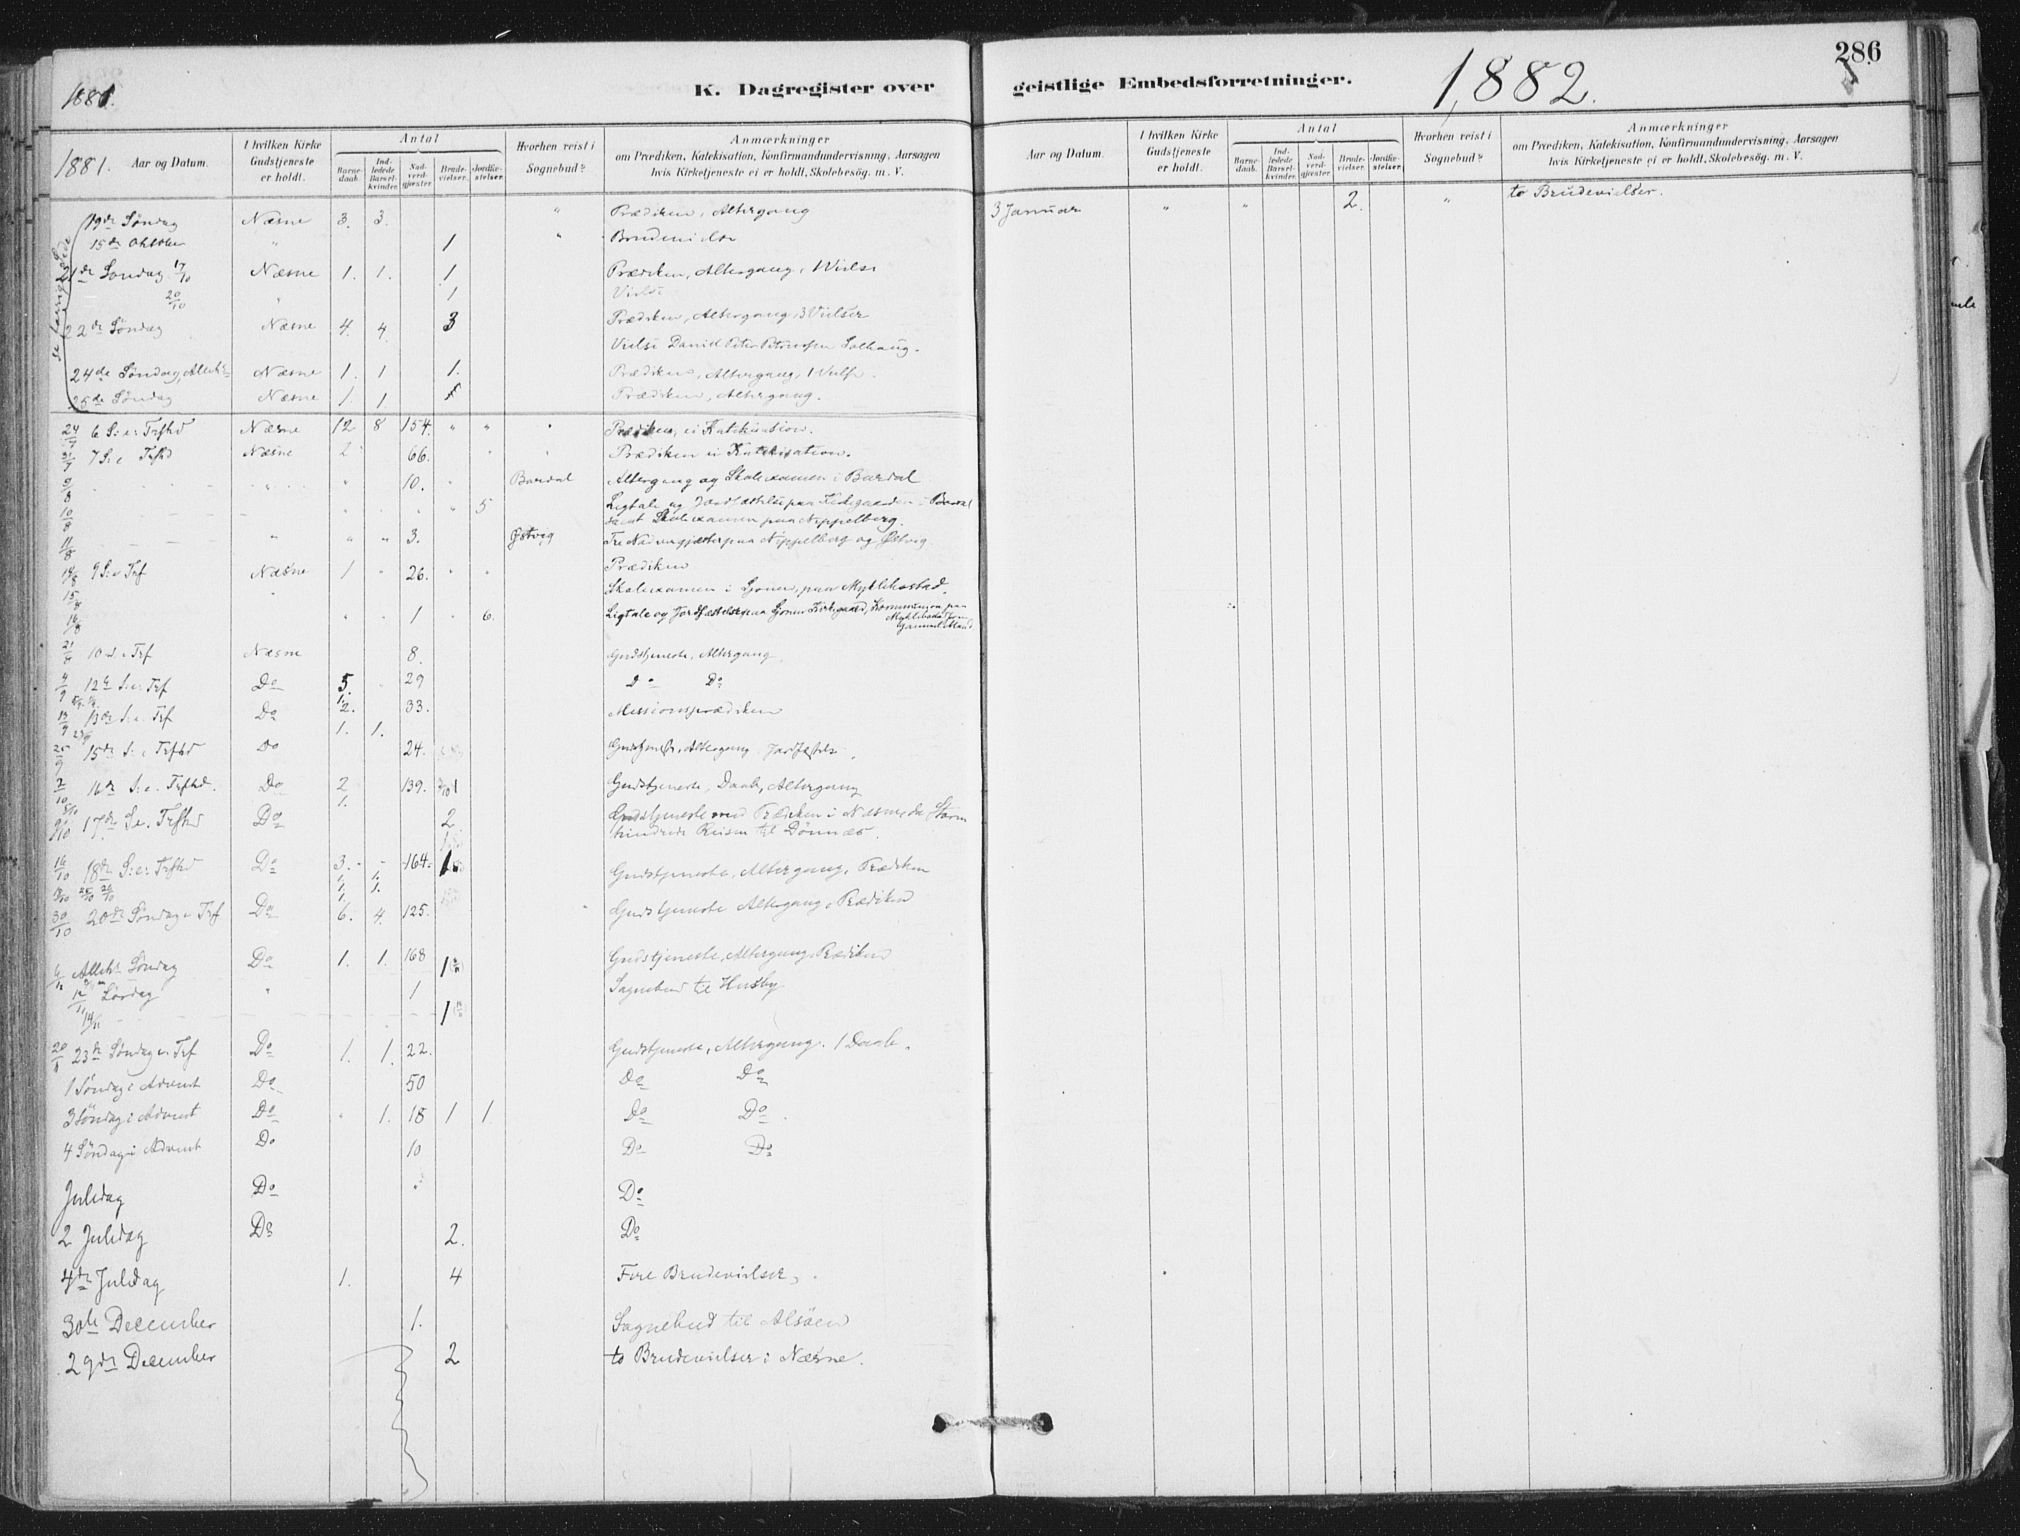 286
1881.
K. Dagregister over
geistlige Embedsforretninger.
1882.
1881. Aar og Datum.
I hvilken Kirke Gudstjeneste er holdt.
Antal
Barnedaab.
Indledede Barselkvinder.
Nadverdgjæster.
Brudevielser.
Jordfæstelser.
Hvorhen reist i Sognebud?
Anmærkninger
om Prædiken, Katekisation, Konfirmandundervisning, Aarsagen
hvis Kirketjeneste ei er holdt, Skolebesøg. m. V.
Aar og Datum.
I hvilken Kirke Gudstjeneste er holdt.
Antal
Barnedaab.
Indledede Barselkvinder.
Nadverdgjæster.
Brudevielser.
Jordfæstelser.
Hvorhen reist i Sognebud?
Anmærkninger
om Prædiken, Katekisation, Konfirmandundervisning, Aarsagen
hvis Kirketjeneste ei er holdt, Skolebesøg. m. V.
19de Søndag Næsne 3. 3. " Prædiken, Altergang
15de Oktober " 1 " Brudevielse
21de Søndag 17/10 Næsne 1. 1. 1 Prædiken, Altergang, 1 Vielse
20/10 " 1 Vielse
22de Søndag Næsne 4. 4. 3 Prædiken, Altergang, 3 Vielser
Vielse David Peter Petersen Solhaug.
24de Søndag, Alleh. Næsne 1. 1 1. Prædiken, Altergang, 1 Vielse.
25de Søndag Næsne 1. 1 Prædiken, Altergang.
24/7 6 S: e: Trfhd Næsne 12 8 154. " " " Prædiken, ei Katekisation.
31/7 7 S: e Trfhd Næsne 2 66. " " Prædiken ei Katekisation.
9/8 " " 10. " Bardal Altergang og Skoleexamen i Bardal
10/8 " " " " 5 Ligtale og Jordfæstelse paa Kirkegaarden i Bardal
samt Skoleexamen paa Nippelberg.
11/8 " " " 3. Østvig Tre Nadvergjæster paa Nippelberg og Østvig.
14/8 9 S: e Trf Næsne 1 " 26. " " Prædiken
15/8 " Skoleexamen i Sjonen, paa Myklebostad.
16/8 " " 1 " 6. Ligtale og Jordfæstelse paa Sjonen Kirkegaard, Kommunion paa
21/8 10 S. e Trf Næsne 8. Gudstjeneste, Altergang.
4/9 12te S: e: Trf Do 5. 29 Do Do
13/9 13de S: e. Trf Do 2. 33. Missionsprædiken
1. 1.
25/9 15de S: e Trfhd Do 24. Gudstjeneste, Altergang. Jordfæstelse.
2/10 16de S: e. Trfhd. Do 2 139. 1 Gudstjeneste, Daab, Altergang
9/10 17de S.e. Trfhd Do 1. 2 Gudstjeneste med Prædiken i Næsne, da Storm
hindrede Reisen til Dønnæs.
16/10 18de S: e: Trfhd Do 3. 164. 1 Gudstjeneste, Altergang, Prædiken
30/10 20de Søndag e Trf Do 6. 4. 125. Gudstjeneste Altergang, Prædiken
6/11 Alleh. Søndag Do 1. 1. 168 1 Gudstjeneste, Altergang, Prædiken
12/11 Lørdag " 1 Sognebud til Husby
14/11 1
20/11 23de Søndag e. Trf Do 1. 1. 22. Gudstjeneste, Altergang. 1 Daab.
1 Søndag e Advent Do 50 Do Do
3 Søndag i Advent Do " 1. 18 1 1. Do Do
4 Søndag i Advent Do 10 Do Do
Juledag Do " Do
2 Juledag Do 2. Do
4de Juledag 1. 4 Fire Brudevielser.
30te December 1. Sognebud til Alsøen
29de December 2 to Brudevielser i Næsne.
3 Januar " " 2. " to Brudevielser.